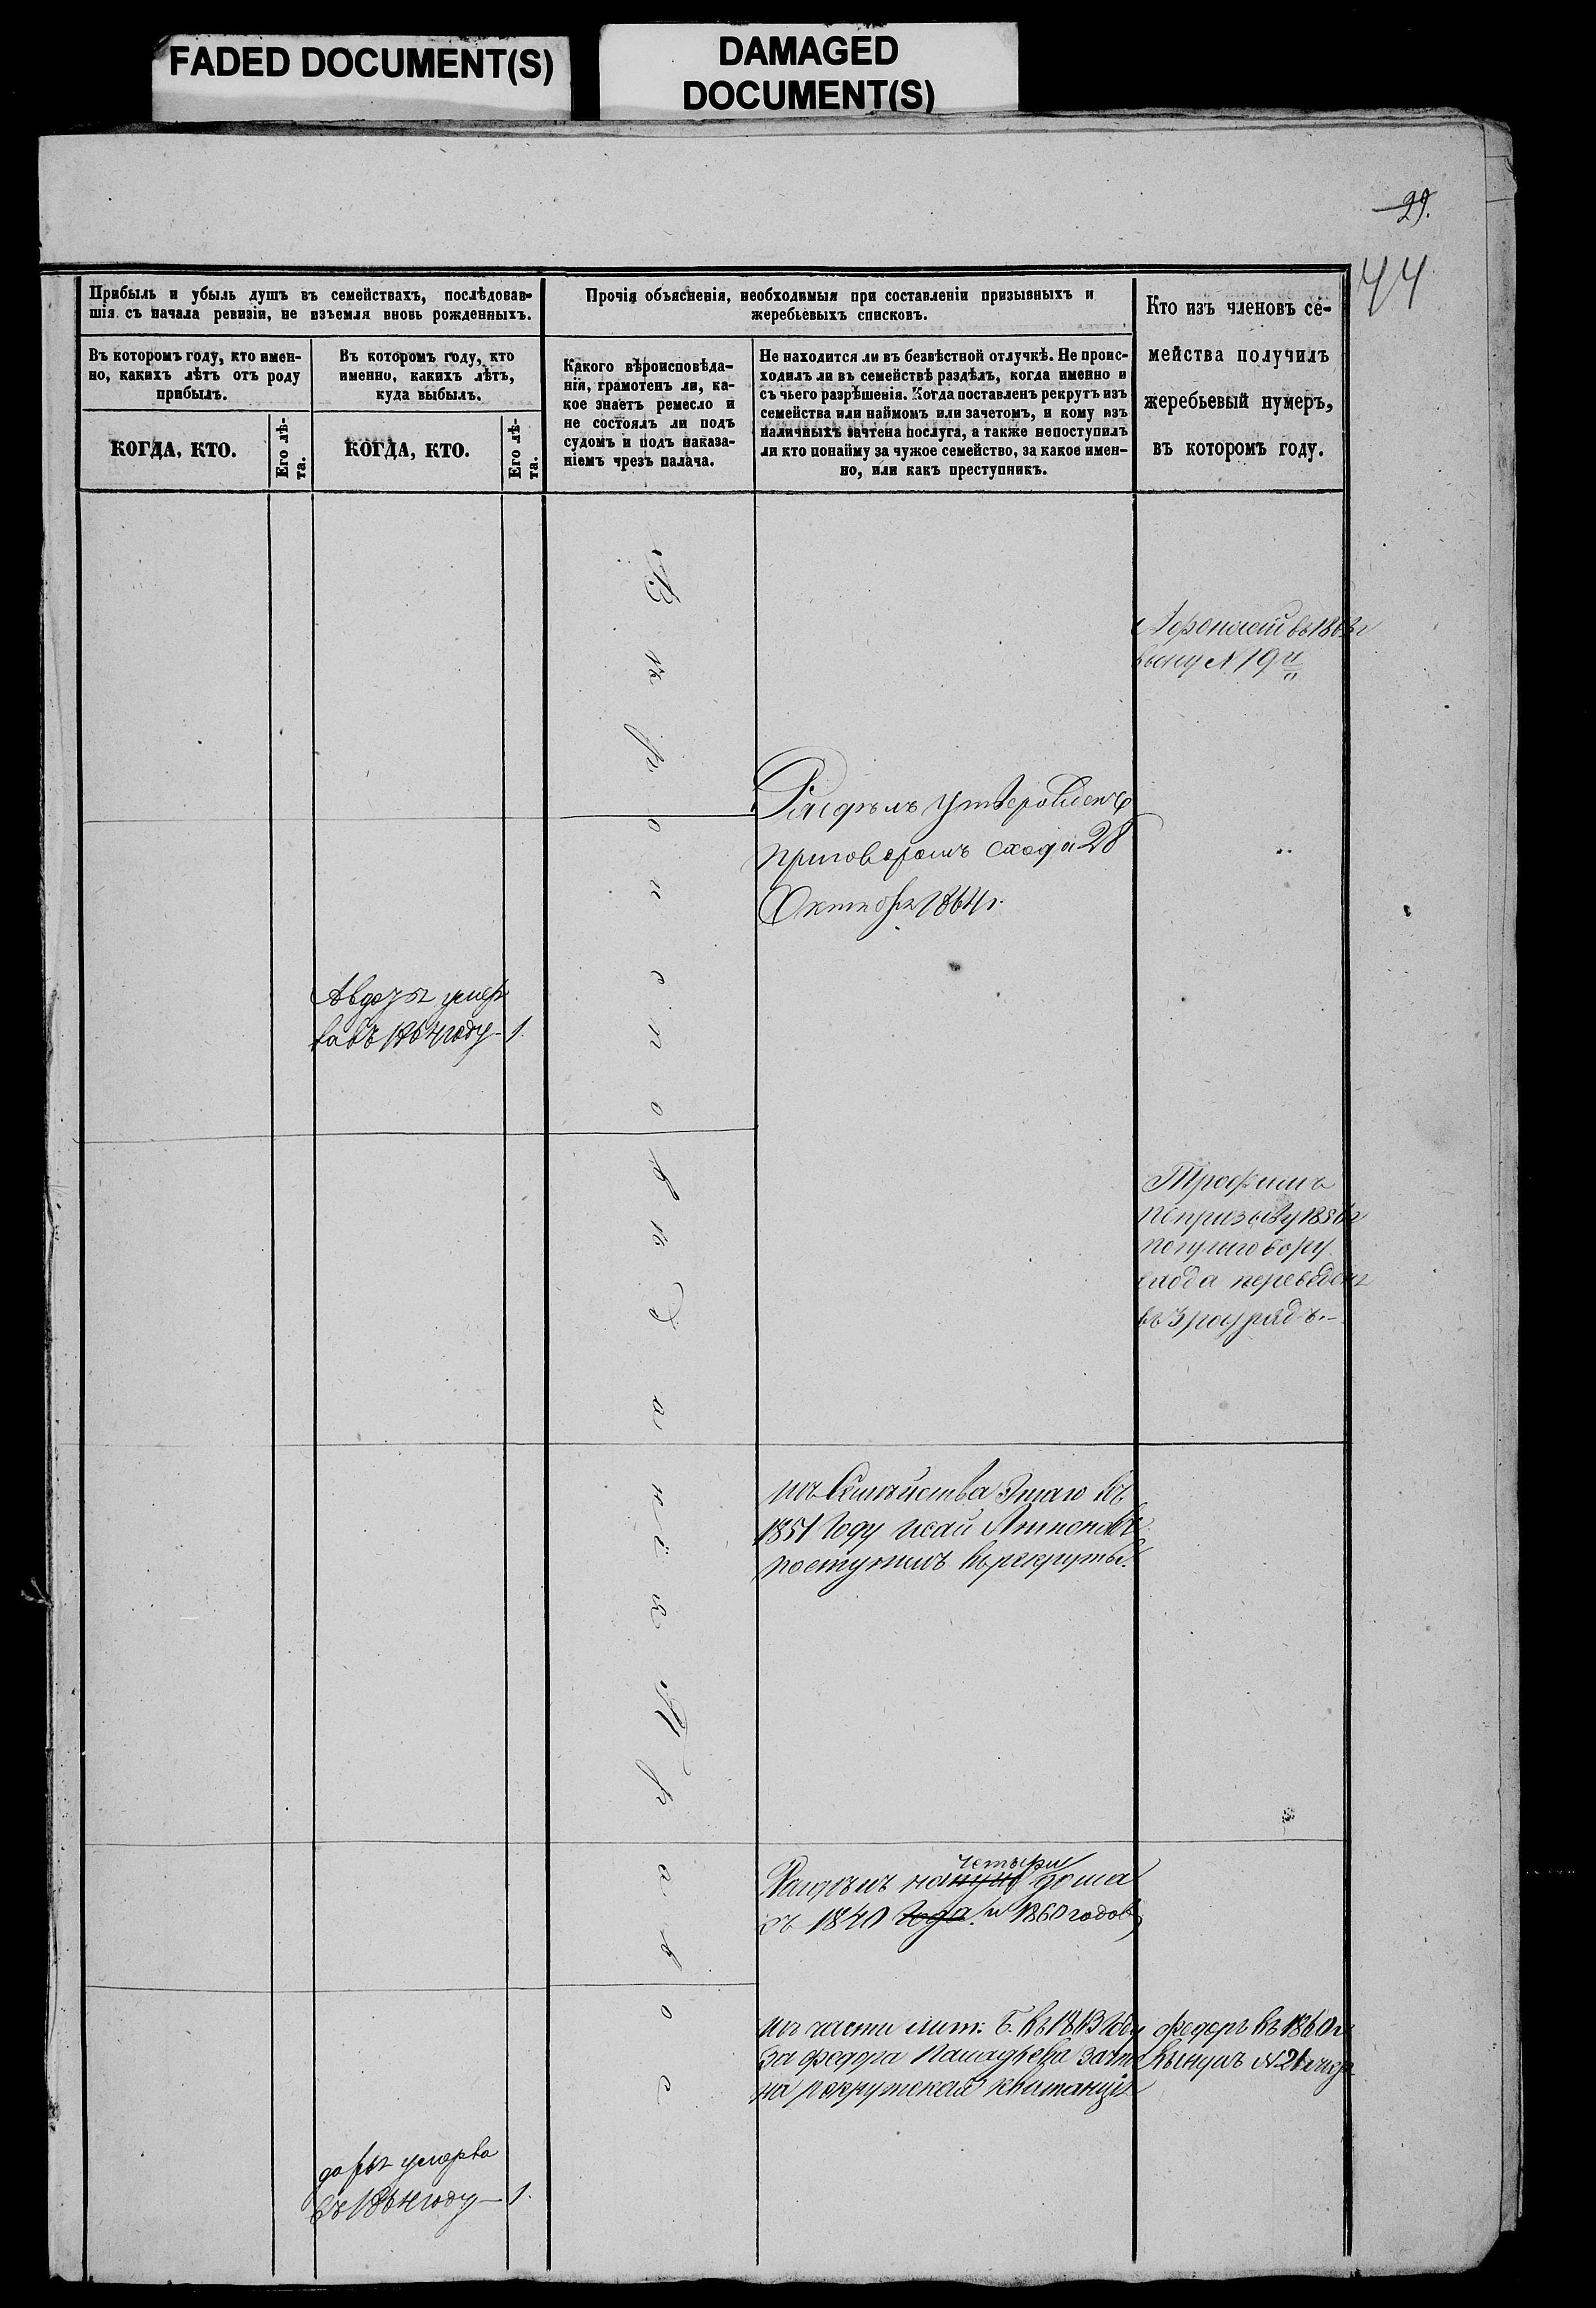 FADED DOCUMENT(S)
DAMAGED
DOCUMENT(S)
29.
44
Прибыль и убыль душъ въ семействахъ, послѣдовав-
шія съ начала ревизіи, не изъемля вновь рожденныхъ.
Прочія объясненія, необходимыя при составленіи призывныхъ и
жеребьевыхъ списковъ.
Кто изъ членовъ се-
мейства получилъ
жеребьевый нумеръ,
въ которомъ году.
Въ которомъ году, кто имен-
но, какихъ лѣтъ отъ роду
прибылъ.
Въ которомъ году, кто
именно, какихъ лѣтъ,
куда выбылъ.
Какого вѣроисповѣда-
нія, грамотенъ ли, ка-
кое знаетъ ремесло и
не состоялъ ли подъ
судомъ и подъ наказа-
ніемъ чрезъ палача.
Не находится ли въ безвѣстной отлучкѣ. Не проис-
ходилъ ли въ семействѣ раздѣлъ, когда именно и
съ чьего разрѣшенія. Когда поставленъ рекрутъ изъ
семейства или наймомъ или зачетомъ, и кому изъ
наличныхъ зачтена послуга, а также непоступилъ
ли кто понайму за чужое семейство, за какое имен-
но, или какъ преступникъ.
КОГДА, КТО.
Его лѣ-
та.
КОГДА, КТО.
Его лѣ-
та.
Вѣроисповѣданія Православ
въ 186
N 19й
Раздѣлъ утвержденъ
приговоромъ схода 28
Октября 1864 г.
умер
въ 1864 году - 1.
Трофимъ
по призыву 185
по приговору
схода переведенъ
въ 3 разрядъ.-
изъ Семейства Этаго въ
1851 Году Исай
поступилъ въ рекруты.
четыри
Раздѣлъ на дома
съ 1840 года и 1860 годов
изъ части лит: Б. въ 1863 Году
за Федора зачте
на рекрутская квитанція
Федоръ въ 1860 г
вынулъ N 21
Дарья умерла
въ 1864 году - 1.